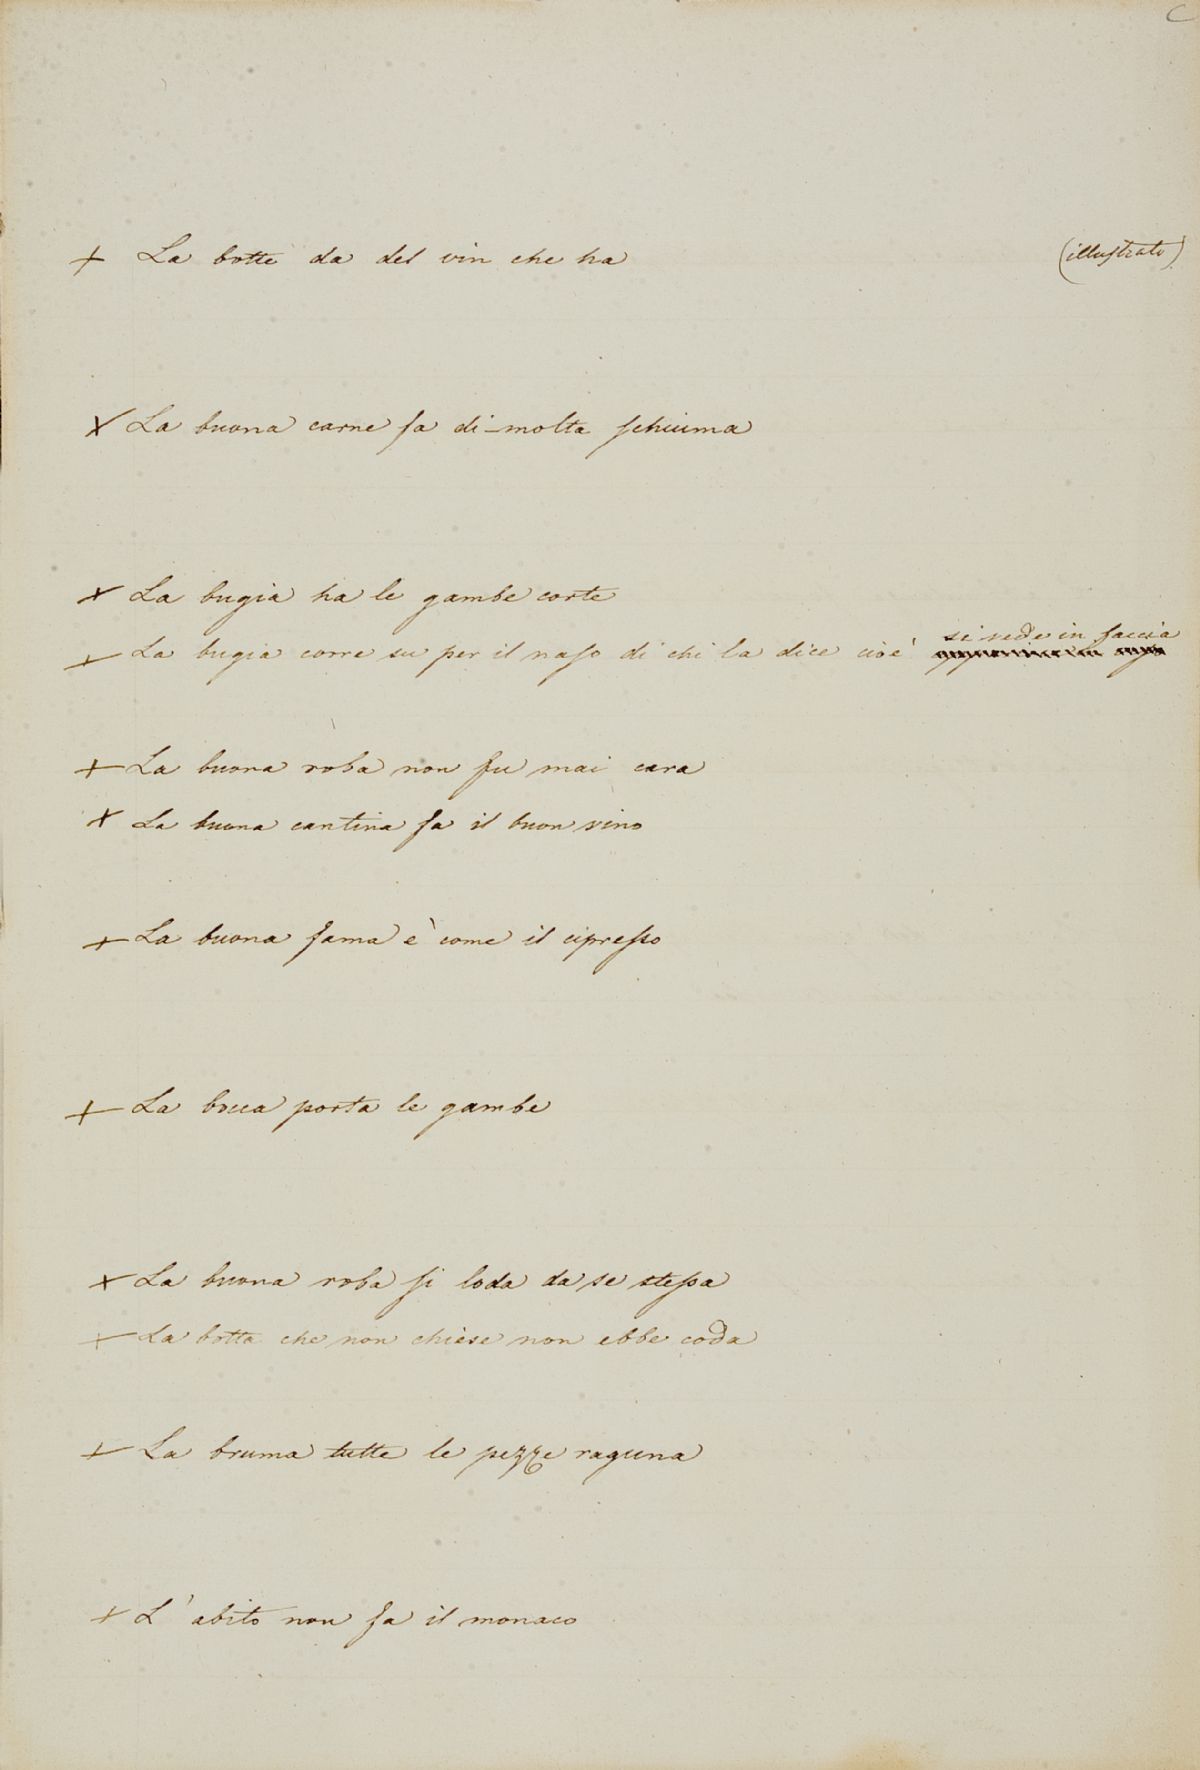 C
+ La botte da del vin che ha (illustrato)
x La buona carne fa di-molta schiuma
x La bugia ha le gambe corte
si vede in faccia
+ La bugia corre su per il naso di chi la dice cioè
+ La buona roba non fu mai cara
x La buona cantina fa il buon vino
+ La buona fama è come il cipresso
+ La bocca porta le gambe
x La buona roba si loda da se stessa
+ La botta che non chiese non ebbe coda
+ La bruma tutte le pezze raguna
+ L'abito non fa il monaco